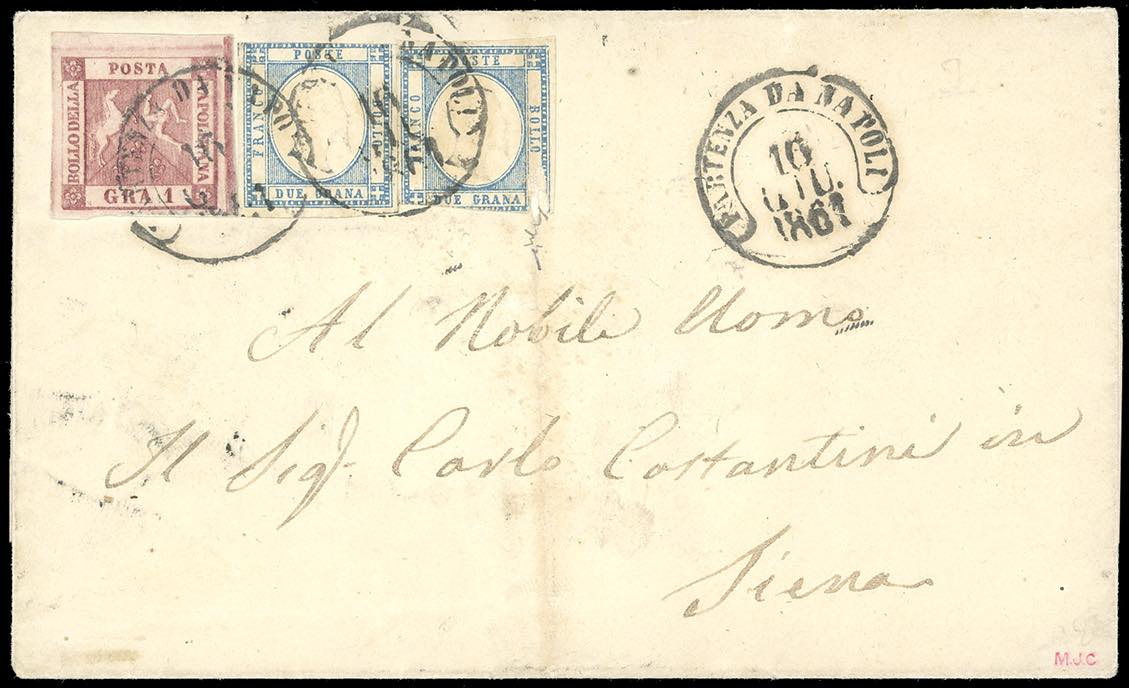 POSTA
BOLLO DELLA
NAPOLETANA
GRA 1
POSTE
FRANCO
BOLLO
DUE GRANA
POSTE
FRANCO
BOLLO
DUE GRANA
PARTENZA DA NAPOLI
16
GIU.
1861
Al Nobile Uomo
Il Sigr Carlo Costantini in
Siena
M.J.C